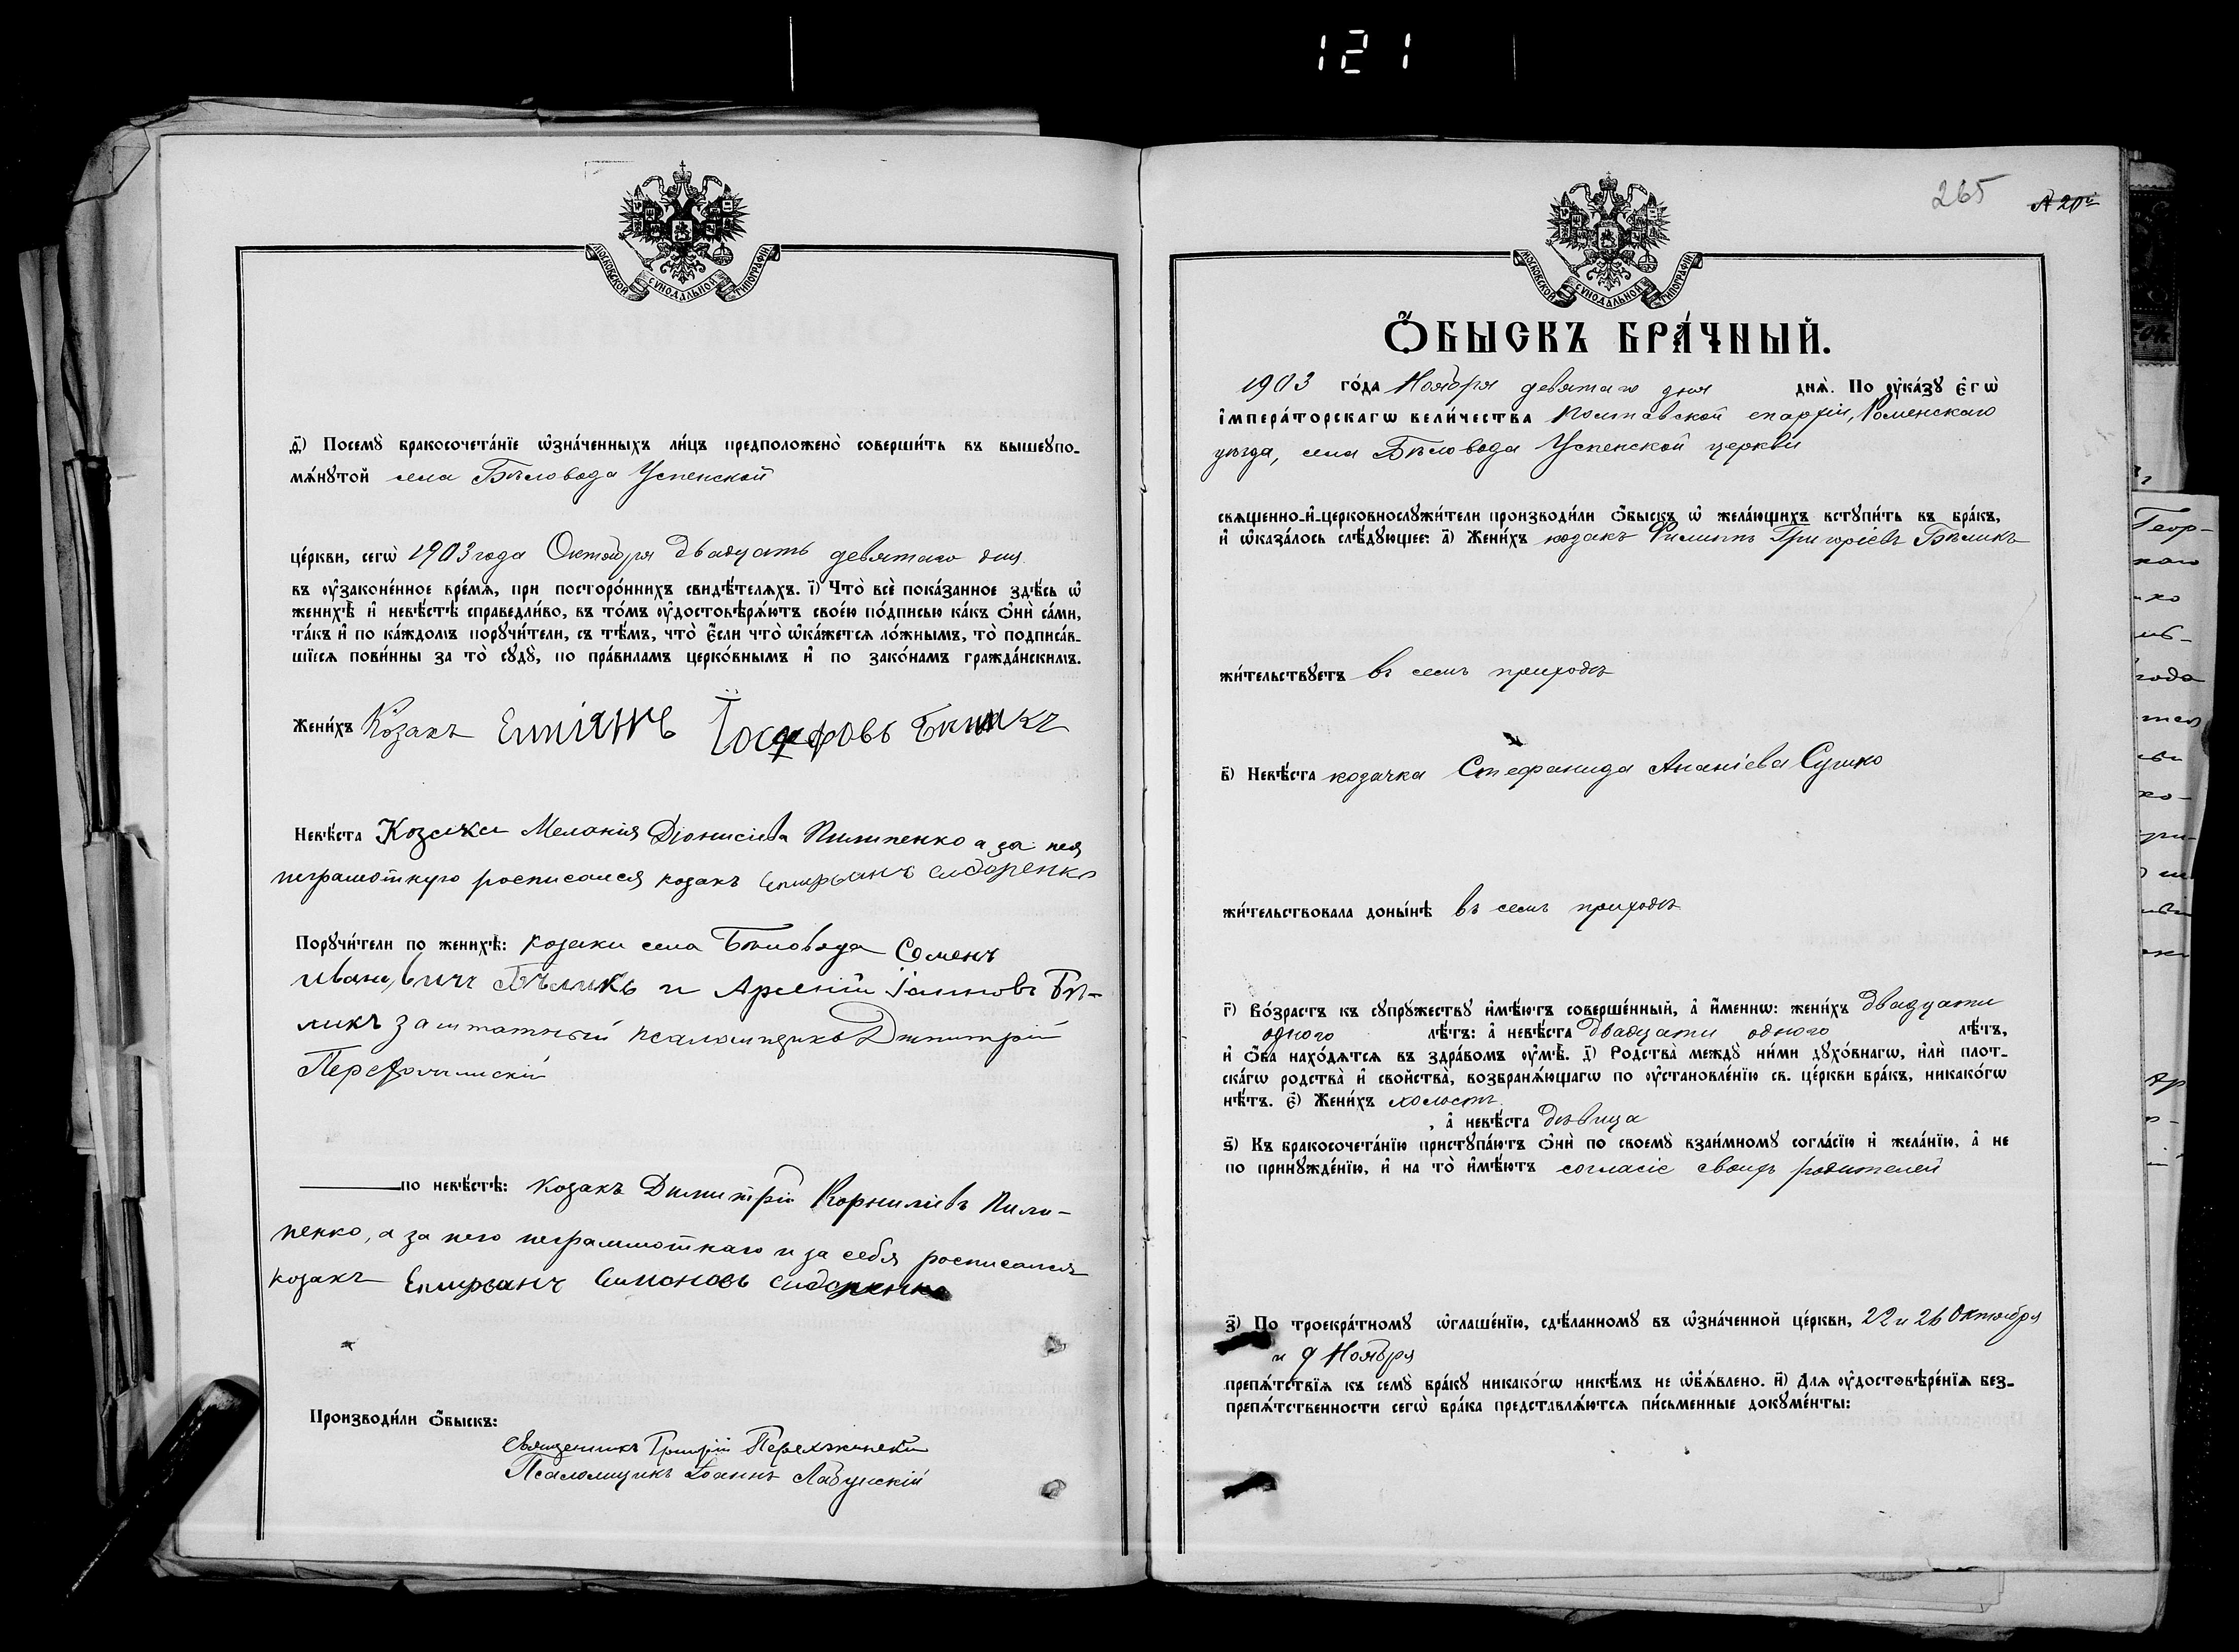 121
МОСКОВСКОЙ СѴНОДАЛЬНОЙ ТИПОГРАФІИ
д҃) Посемꙋ̀ бракосочета́нїе ѡ҆зна́ченныхъ ли́цъ предположено̀ соверши́ть въ вышеупо-
мѧ́нꙋтой села Бѣловода Успенской
це́ркви, сегѡ̀ 1903 года Октября двадцать девятаго дня
въ оу҆законе́нное вре́мѧ, при посторо́ннихъ свидѣ́телѧхъ. і҃) Что̀ всѐ пока́занное здѣ́сь ѡ҆
женихѣ̀ и҆ невѣ́стѣ справедли́во, въ то́мъ оу҆достовѣрѧ́ютъ свое́ю по́дписью ка́къ ѻ҆нѝ са́ми,
та́къ и҆ по ка́ждомъ порꙋчи́тели, съ тѣ́мъ, что̀ є҆́сли что̀ ѡ҆ка́жетсѧ ло́жнымъ, то̀ подписа́в-
шїесѧ пови́нны за то̀ сꙋдꙋ̀, по пра́виламъ церко́внымъ и҆ по зако́намъ гражда́нскимъ.
Жени́хъ Козакъ Іосифовъ Бѣликъ
Невѣ́ста Козачка Меланія Діонисіева Пилипенко а за нея
неграмотную росписался козакъ Сидоренко
Порꙋчи́тели по женихѣ̀: козаки села Бѣловода Семенъ
Иванович Бѣликъ и Арсеній Іаиновъ Бѣ-
ликъ заштатный псаломщикъ Димитрій
по невѣ́стѣ: козакъ Димитрій Корниліевъ Пили-
пенко, а за него неграммотнаго и за себя росписался
козакъ Симоновъ Сидоренко
Производи́ли ѻ҆́быскъ:
Священникъ Григорій
Псаломщикъ Іоаннъ Лабунскій
265
МОСКОВСКОЙ СѴНОДАЛЬНОЙ ТИПОГРАФІИ
Ѻ҆́БЫСКЪ БРА́ЧНЫЙ.
1903 го́да Ноября девятаго дня днѧ̀. По оу҆ка́зꙋ є҆гѡ̀
і҆мпера́торскагѡ вели́чества Полтавской епархіи, Роменскаго
уѣзда, села Бѣловода Успенской церкви
свѧщенно-и҆-церковнослꙋжи́тели производи́ли ѻ҆́быскъ ѡ҆ жела́ющихъ вступи́ть въ бра́къ,
и҆ ѡ҆каза́лось слѣ́дꙋющее: а҃) Жени́хъ козакъ Филиппъ Григоріевъ Бѣликъ
жи́тельствꙋетъ въ семъ приходѣ
в҃) Невѣ́ста козачка Стефанида Ананіева Сушко
жи́тельствовала доны́нѣ въ семъ приходѣ
г҃) Во́зрастъ къ сꙋпрꙋ́жествꙋ и҆мѣ́ютъ соверше́нный, а҆ и҆́менно: жени́хъ двадцати
одного лѣ́тъ: а҆ невѣ́ста двадцати одного лѣ́тъ,
и҆ ѻ҆́ба нахо́дѧтсѧ въ здра́вомъ оу҆мѣ̀. д҃) Родства̀ междꙋ̀ ни́ми дꙋхо́внагѡ, и҆лѝ плот-
ска́гѡ родства̀ и҆ свойства̀, возбранѧ́ющагѡ по оу҆становле́нїю св. це́ркви бра́къ, никако́гѡ
нѣ́тъ. є҃) Жени́хъ холостъ
, а҆ невѣ́ста дѣвица
ѕ҃) Къ бракосочета́нїю пристꙋпа́ютъ ѻ҆нѝ по своемꙋ̀ взаи́мномꙋ согла́сїю и҆ жела́нїю, а҆ не
по принꙋжде́нїю, и҆ на то̀ и҆мѣ́ютъ согласіе своихъ родителей
з҃) По троекра́тномꙋ ѡ҆глаше́нїю, сдѣ́ланномꙋ въ ѡ҆зна́ченной це́ркви, 22 и 26 Октября
и 9 Ноября
препѧ́тствїѧ къ семꙋ̀ бра́кꙋ никако́гѡ никѣ́мъ не ѡ҆б̾ѧ́влено. и҃) Длѧ оу҆достовѣре́нїѧ без-
препѧ́тственности сегѡ̀ бра́ка представлѧ́ютсѧ пи́сьменные докꙋме́нты: